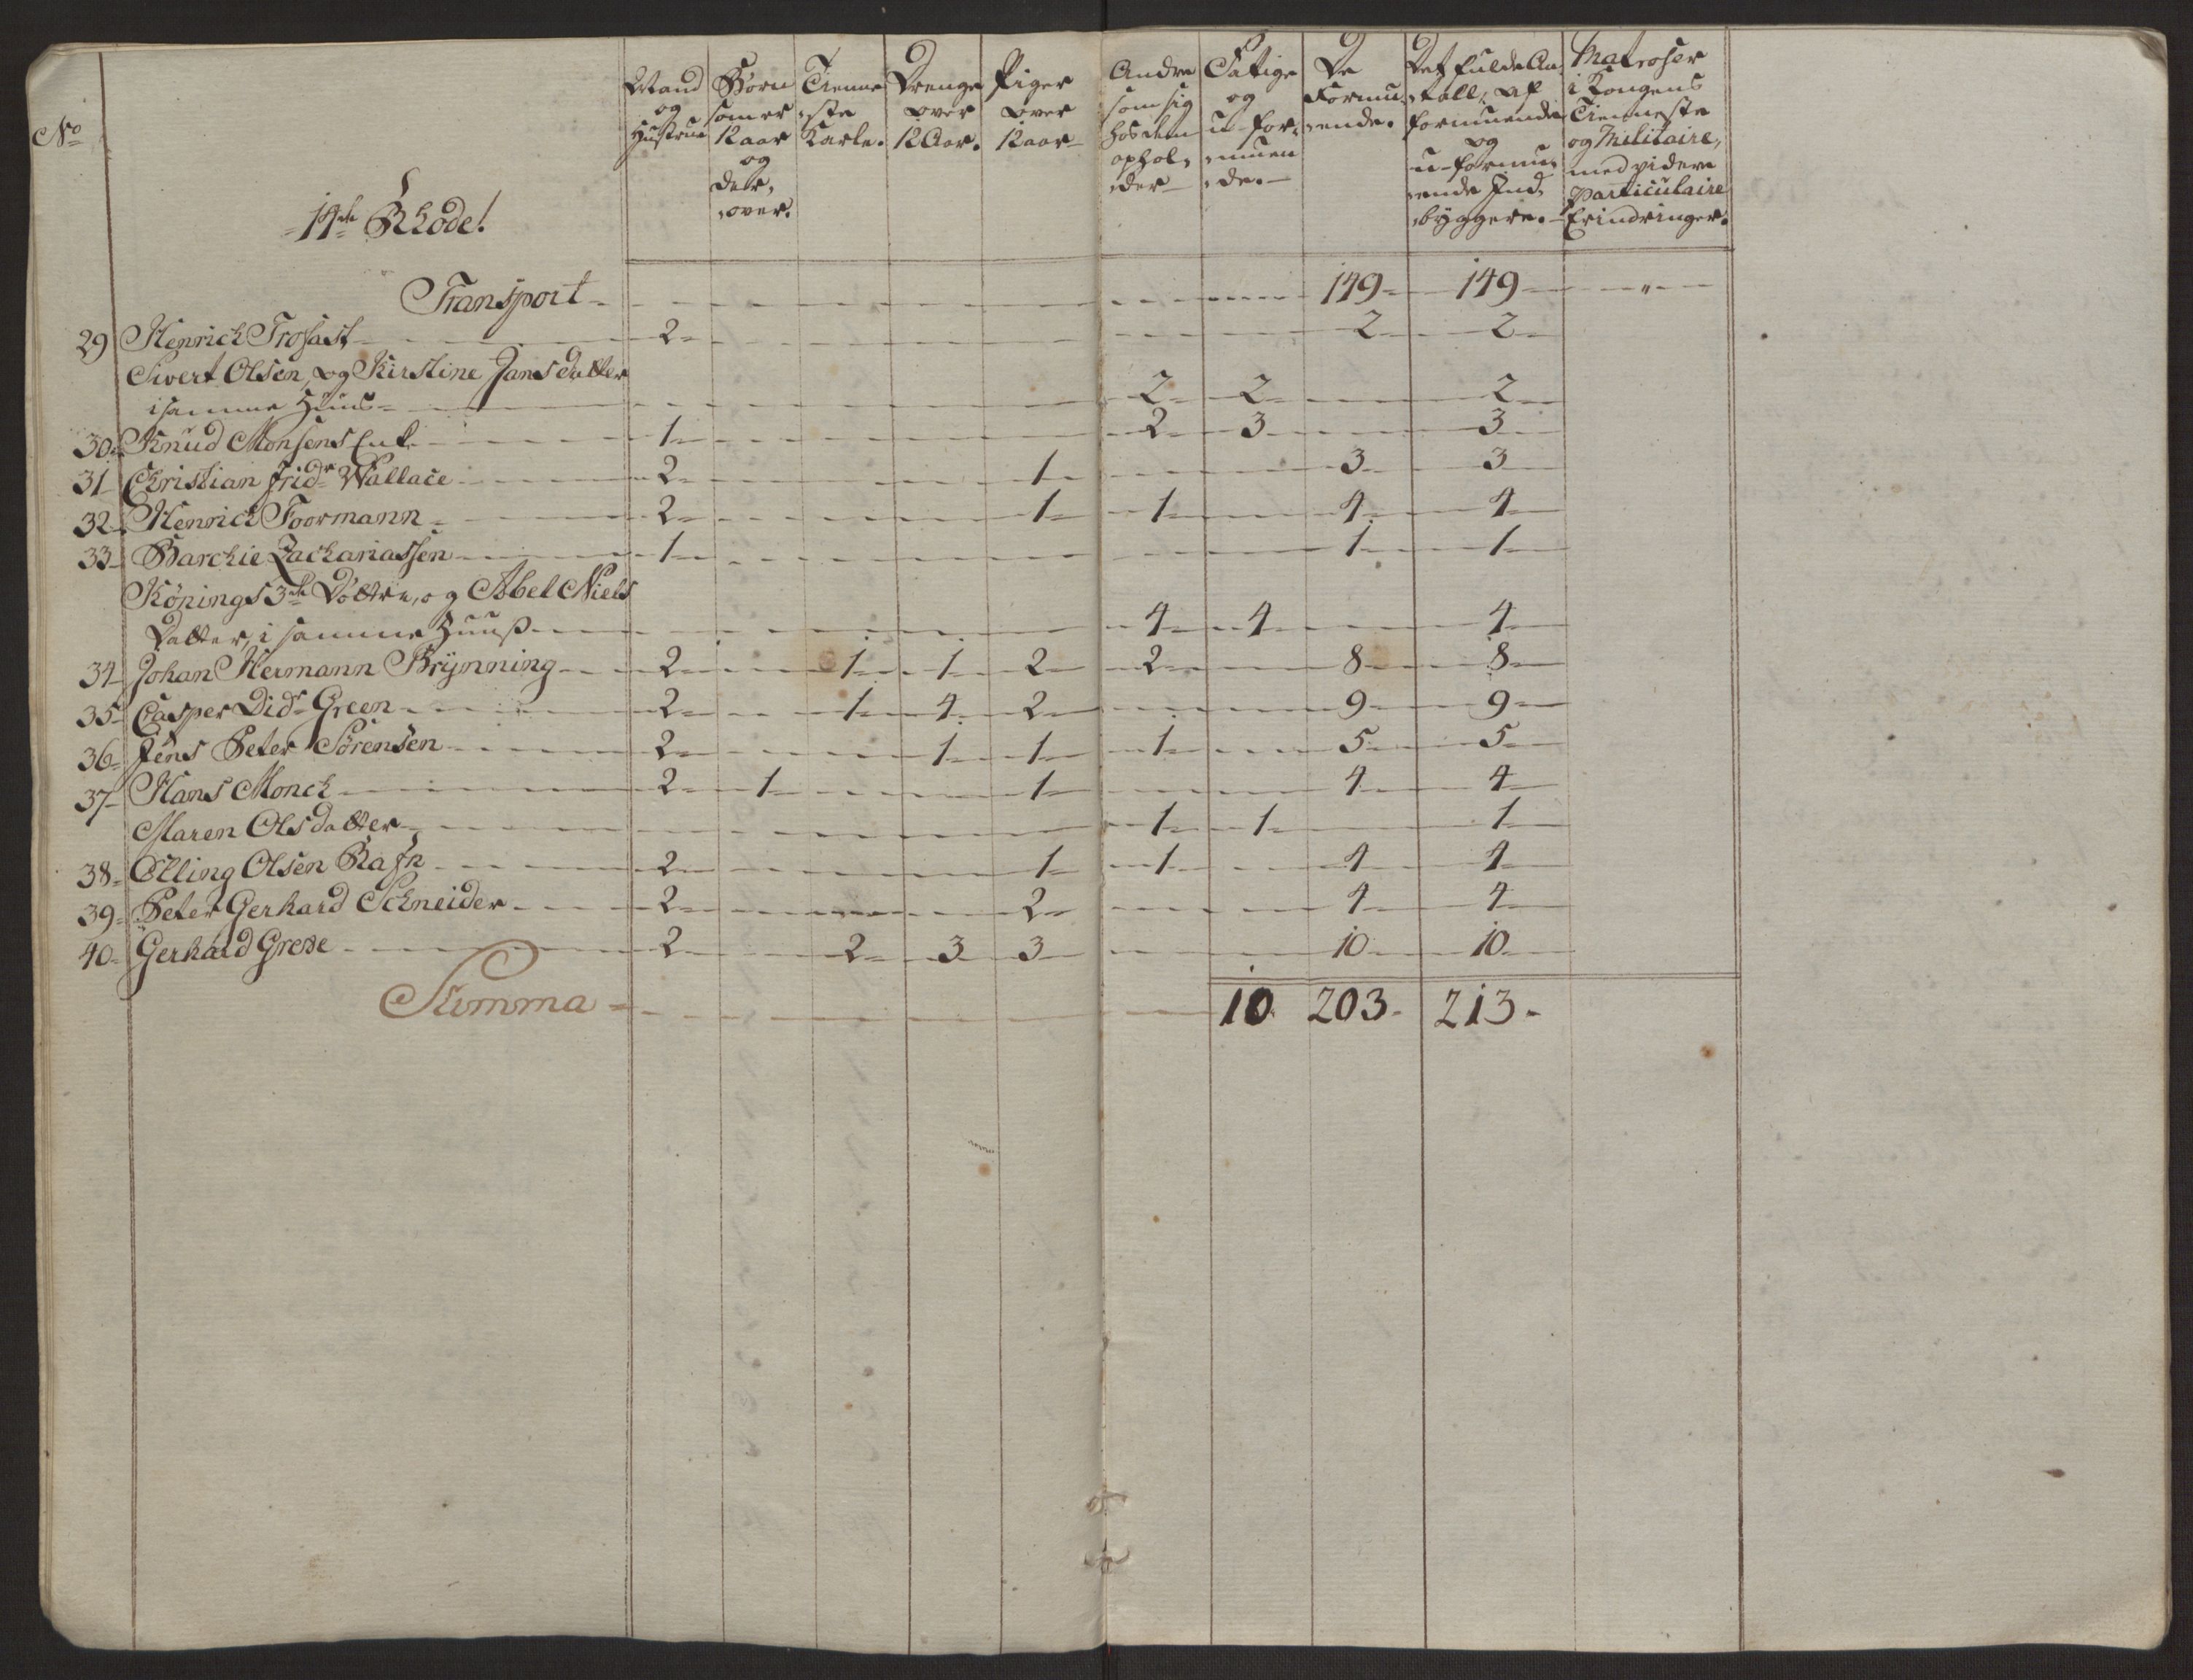 No
14de Rhode!
Mand og Hustrue
Børn som er 12 aar og der,over.
Tienneste Karle.
Drenge over 12 Aar.
Piger over 12 aar
Andre som sig hos dem ophol,der
Fattige og u-for,muende.
De Formu,ende.
Det fulde An,tall, af formuende og u-formu,ende Ind,byggere.
Matroser i Kongens Tienneste og Militaire, med videre Particulaire Erindringer.
Transport - 149 - 149 - " -
29 Henrich Trofast - 2 - 2 - 2
Sivert Olsen, og Kirstine Jans datter
i samme Huus - 2 - 2 - 2
30 Knud Monsens Enke - 1 - 2 - 3 - 3
31 Christian Fridr Wallace - 2 - 1 - 3 - 3
32 Henrich Foormann - 2 - 1 - 1 - 4 - 4
33 Barchie Zachariassen - 1 - 1 - 1
Kønings 3de Døttre, og Abel Niels
Datter, i samme Huuß - 4 - 4 - 4
34 Johan Hermann Brynning - 2 - 1 - 1 - 2 - 2 - 8 - 8
35 Casper Didr Green - 2 - 1 - 4 - 2 - 9 - 9
36 Jens Peter Sørensen - 2 - 1 - 1 - 1 - 5 - 5
37 Hans Monch - 2 - 1 - 1 - 4 - 4
Maren Olsdatter - 1 - 1 - 1
38 Elling Olsen Rafn - 2 - 1 - 1 - 4 - 4
39 Peter Gerhard Schneider - 2 - 2 - 4 - 4
40 Gerhard Grede - 2 - 2 - 3 - 3 - 10 - 10
Summa - 10 203 - 213 -